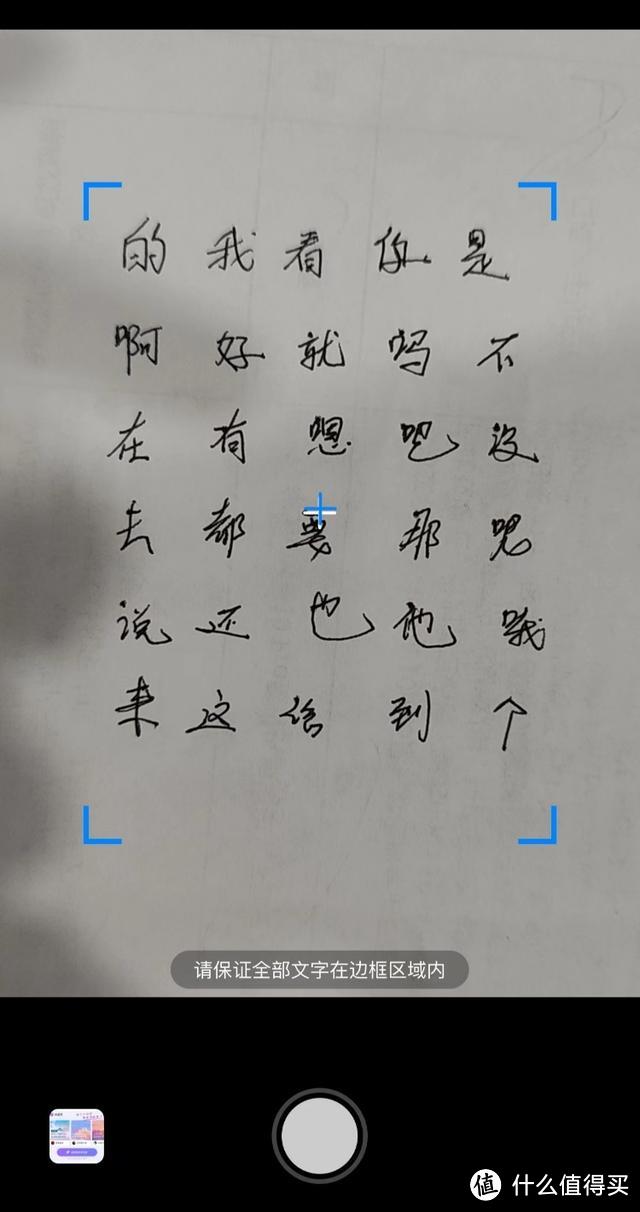 的我看你是
啊好就吗不
在有想吧没
去都要那嗯
说还也他哦
来这给到个
请保证全部文字在边框区域内
值 什么值得买